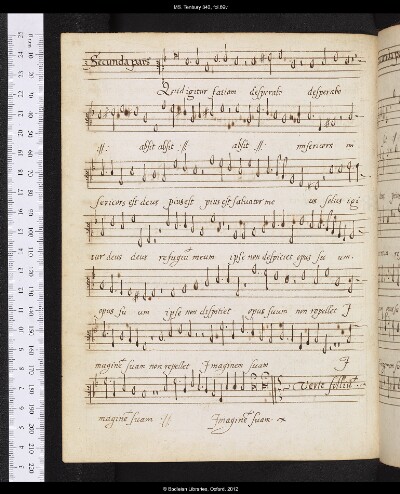 MS. Tenbury 343, fol. 69v
Secunda pars
Quid igitur faciam desperabo desperabo
:||: absit absit :|| absit :||: misericors mi
sericors est deus pius est pius est salvator me us solus igi
tur deus deus refugiū meum ipse non despiciet opus su um.
opus su um ipse non dispiciet opus suum non repellet I
maginē suam non repellet Imaginem suam I
maginē suam :|| Imaginē suam
© Bodleian Libraries, Oxford, 2012